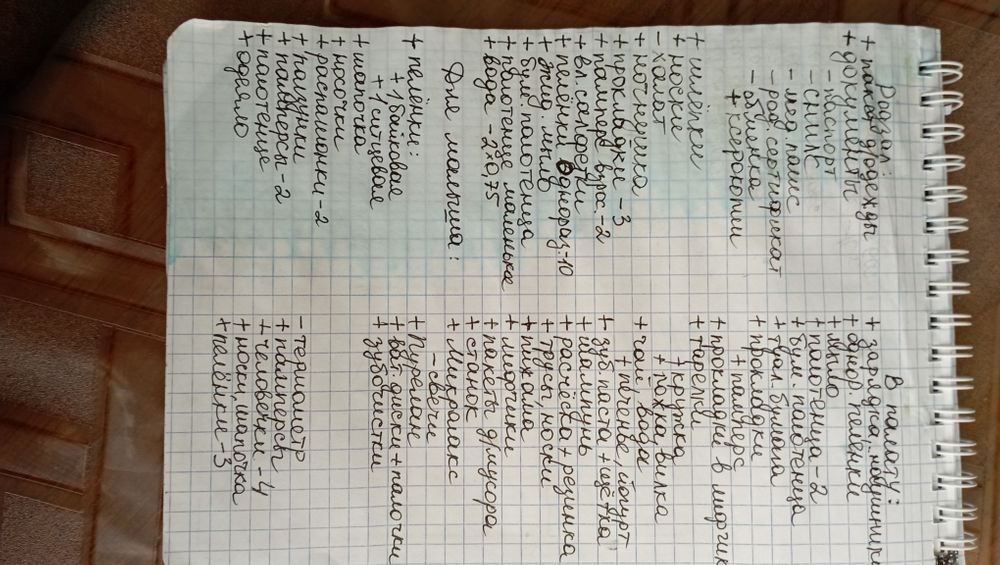 Родзал:
+ пакет д/одежды
+ документы
- паспорт
- СНИЛС
- мед. полис
- род. сертификат
- обменка
+ ксерокопии
+ шлёпки
+ носки
- халат
+ ночнушка
+ прокладки - 3
+ памперс взросл - 2
+ вл. салфетки
+ пелёнки однораз. - 10
+ жид. мыло
+ бум. полотенца
+ полотенце маленькое
+ вода - 2×0,75
Для малыша:
+ пелёнки:
+ 1 байковая
+ 1 ситцевая
+ шапочка
+ носочки
+ распашонки - 2
+ ползунки
+ памперсы - 2
+ полотенце
+ одеяло
В палату:
+ зарядка, наушники
+ однор. пелёнки
+ мыло
+ полотенца - 2
+ бум. полотенца
+ туал. бумага
+ прокладки
+ памперс
+ прокладки в лифчик
+ тарелки
+ кружка
+ ложка, вилка
+ чай, вода
+ печенье, йогурт
+ зуб. паста + щётка
+ шампунь
+ расчёска + резинка
+ трусы, носки
+ пижама
+ лифчики
+ пакеты д/мусора
+ станок
+ Микролакс
- свечи
+ Пурелан
+ ват. диски + палочки
+ зубочистки
- термометр
+ памперсы
+ человечки - 4
+ носки, шапочка
+ пелёнки - 3